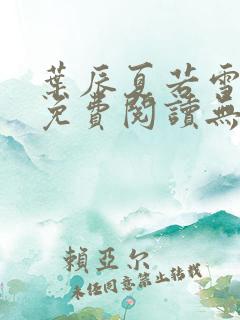 葉辰夏若雪
免費閱讀無
賴亞尔
未经同意禁止转载